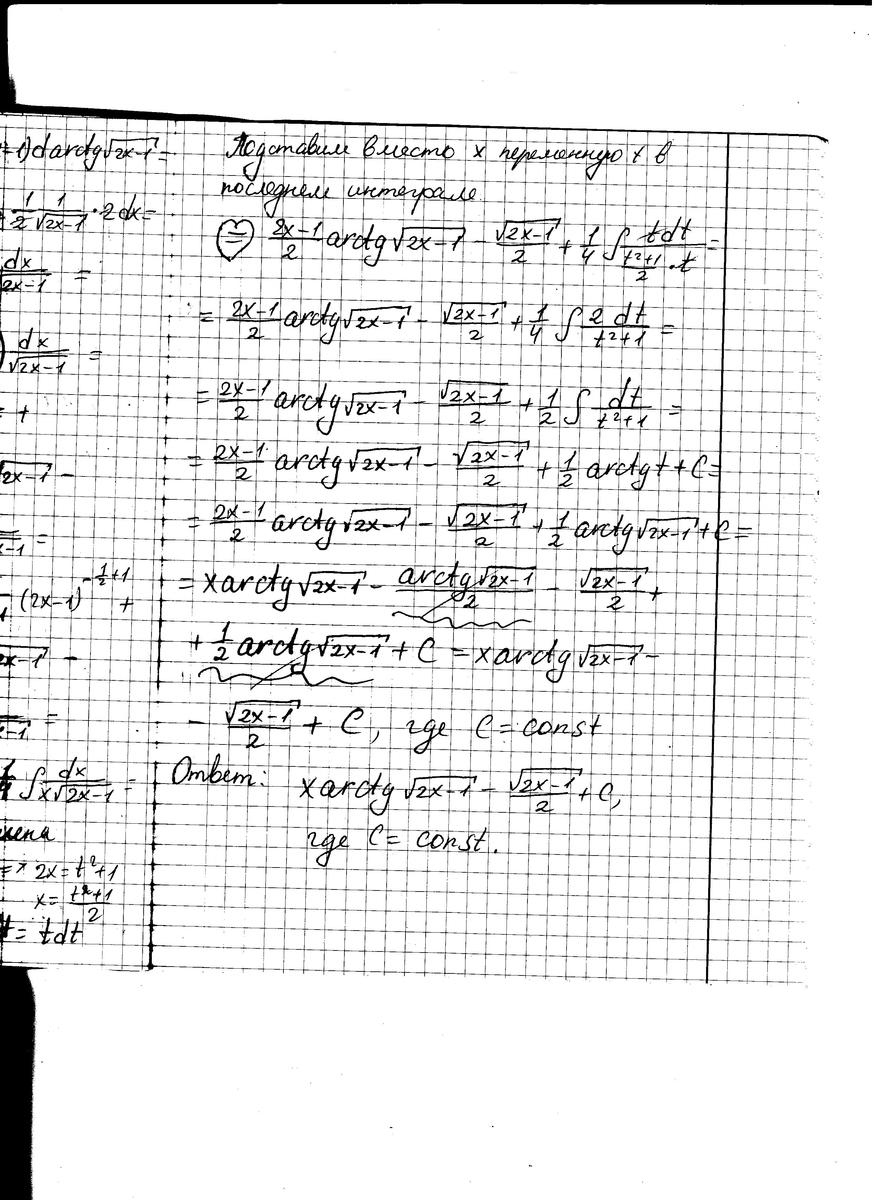 =1)d arctg√(2x-1) =
1/2 1/√(2x-1) · 2dx =
dx/(2x-1) =
) dx/√(2x-1) =
= +
√(2x-1) -
=
(2x-1)^(-1/2+1) +
√(2x-1) -
=
1/4 ∫ dx/(x√(2x-1)) =
=> 2x = t²+1
x = (t²+1)/2
= tdt
Подставим вместо x переменную t в
последнем интеграле
(=) (2x-1)/2 arctg√(2x-1) - √(2x-1)/2 + 1/4 ∫ tdt/((t²+1)/2 · t) =
= (2x-1)/2 arctg√(2x-1) - √(2x-1)/2 + 1/4 ∫ 2 dt/(t²+1) =
= (2x-1)/2 arctg√(2x-1) - √(2x-1)/2 + 1/2 ∫ dt/(t²+1) =
= (2x-1)/2 arctg√(2x-1) - √(2x-1)/2 + 1/2 arctg t + C =
= (2x-1)/2 arctg√(2x-1) - √(2x-1)/2 + 1/2 arctg√(2x-1) + C =
= x arctg√(2x-1) - arctg√(2x-1)/2 - √(2x-1)/2 +
+ 1/2 arctg√(2x-1) + C = x arctg√(2x-1) -
- √(2x-1)/2 + C, где C = const
Ответ: x arctg√(2x-1) - √(2x-1)/2 + C,
где C = const.